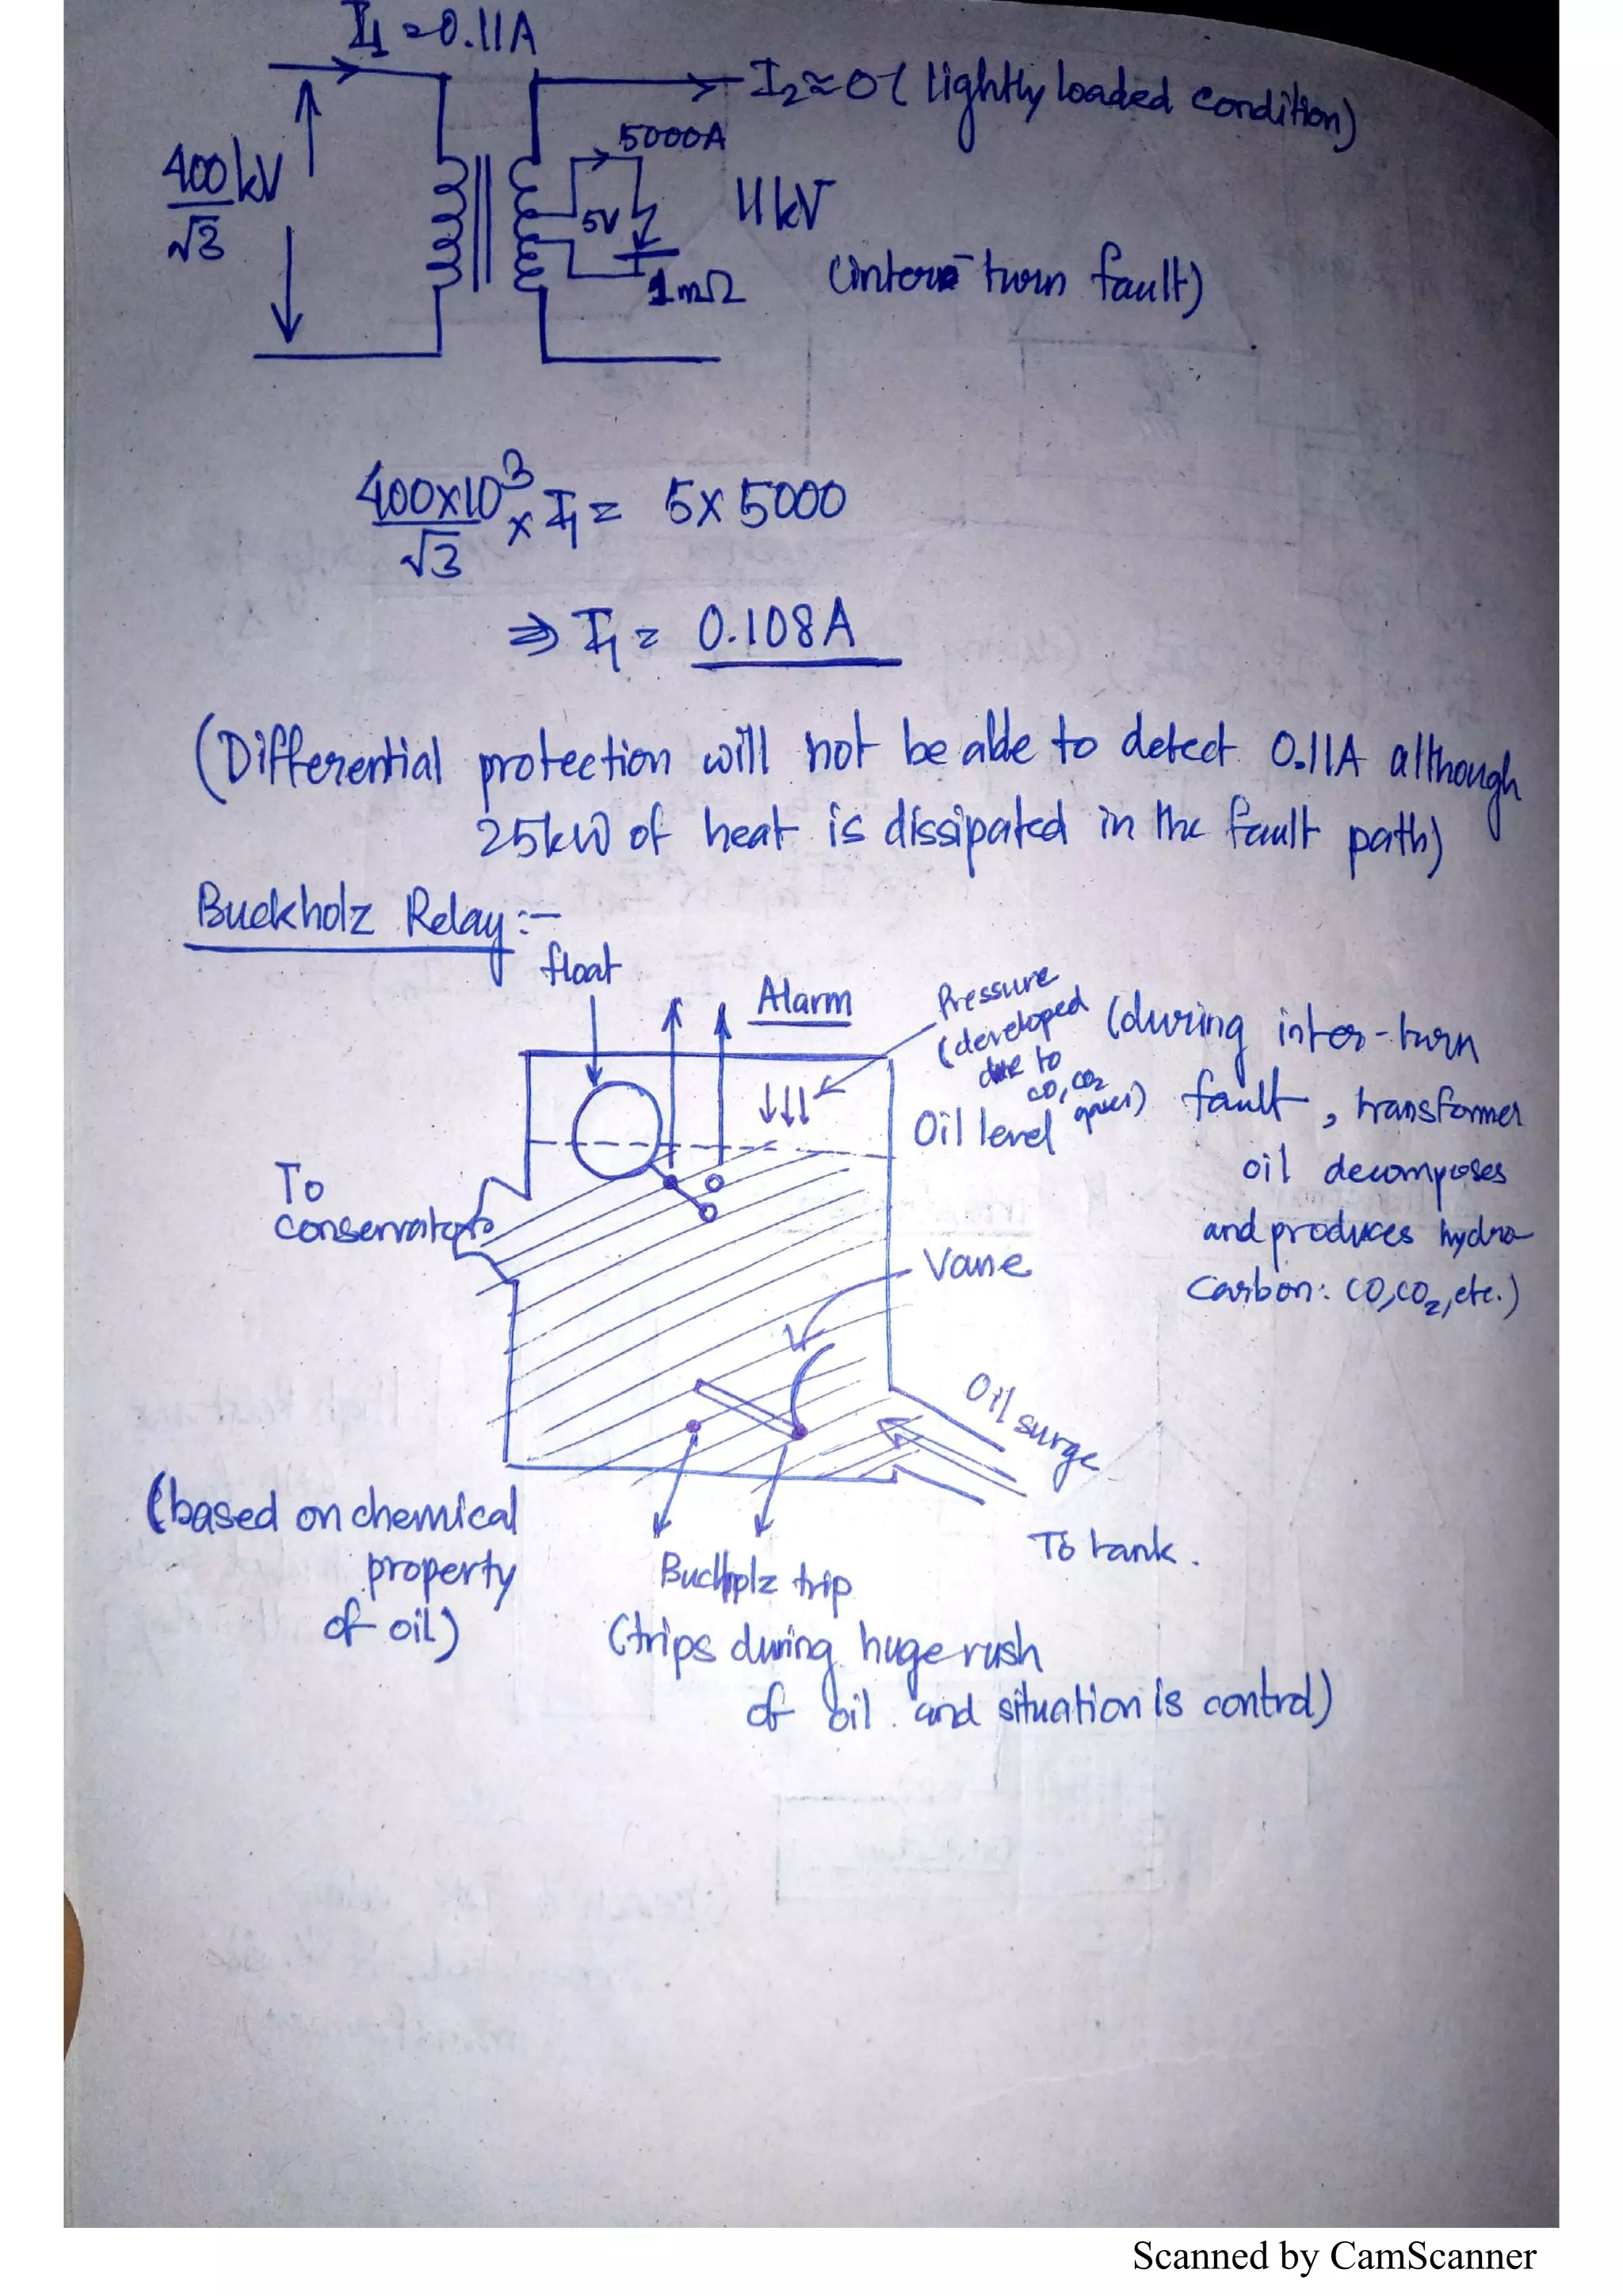 I1 = 0.11A
I2 ≈ 0 (lightly loaded condition)
5000A
400kV
√3
5V
11kV
1mΩ
(inter- turn fault)
400×10³ × I1 = 5×5000
√3
⇒ I1 = 0.108A
(Differential protection will not be able to detect 0.11A although
25kW of heat is dissipated in the fault path)
Buckholz Relay:-
float
Alarm
Pressure
(developed
due to
CO, CO2
gases)
(during inter-turn
fault, transformer
oil decomposes
and produces hydro-
carbon: CO, CO2, etc.)
Oil level
To
conservator
Vane
Oil surge
(based on chemical
property
of oil)
To tank.
Buchholz trip
(trips during huge rush
of oil and situation is control)
Scanned by CamScanner